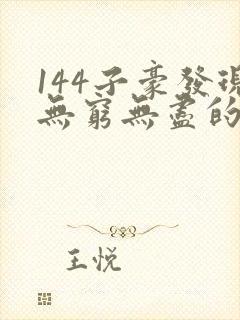 144子豪發現
無窮無盡的
王悅